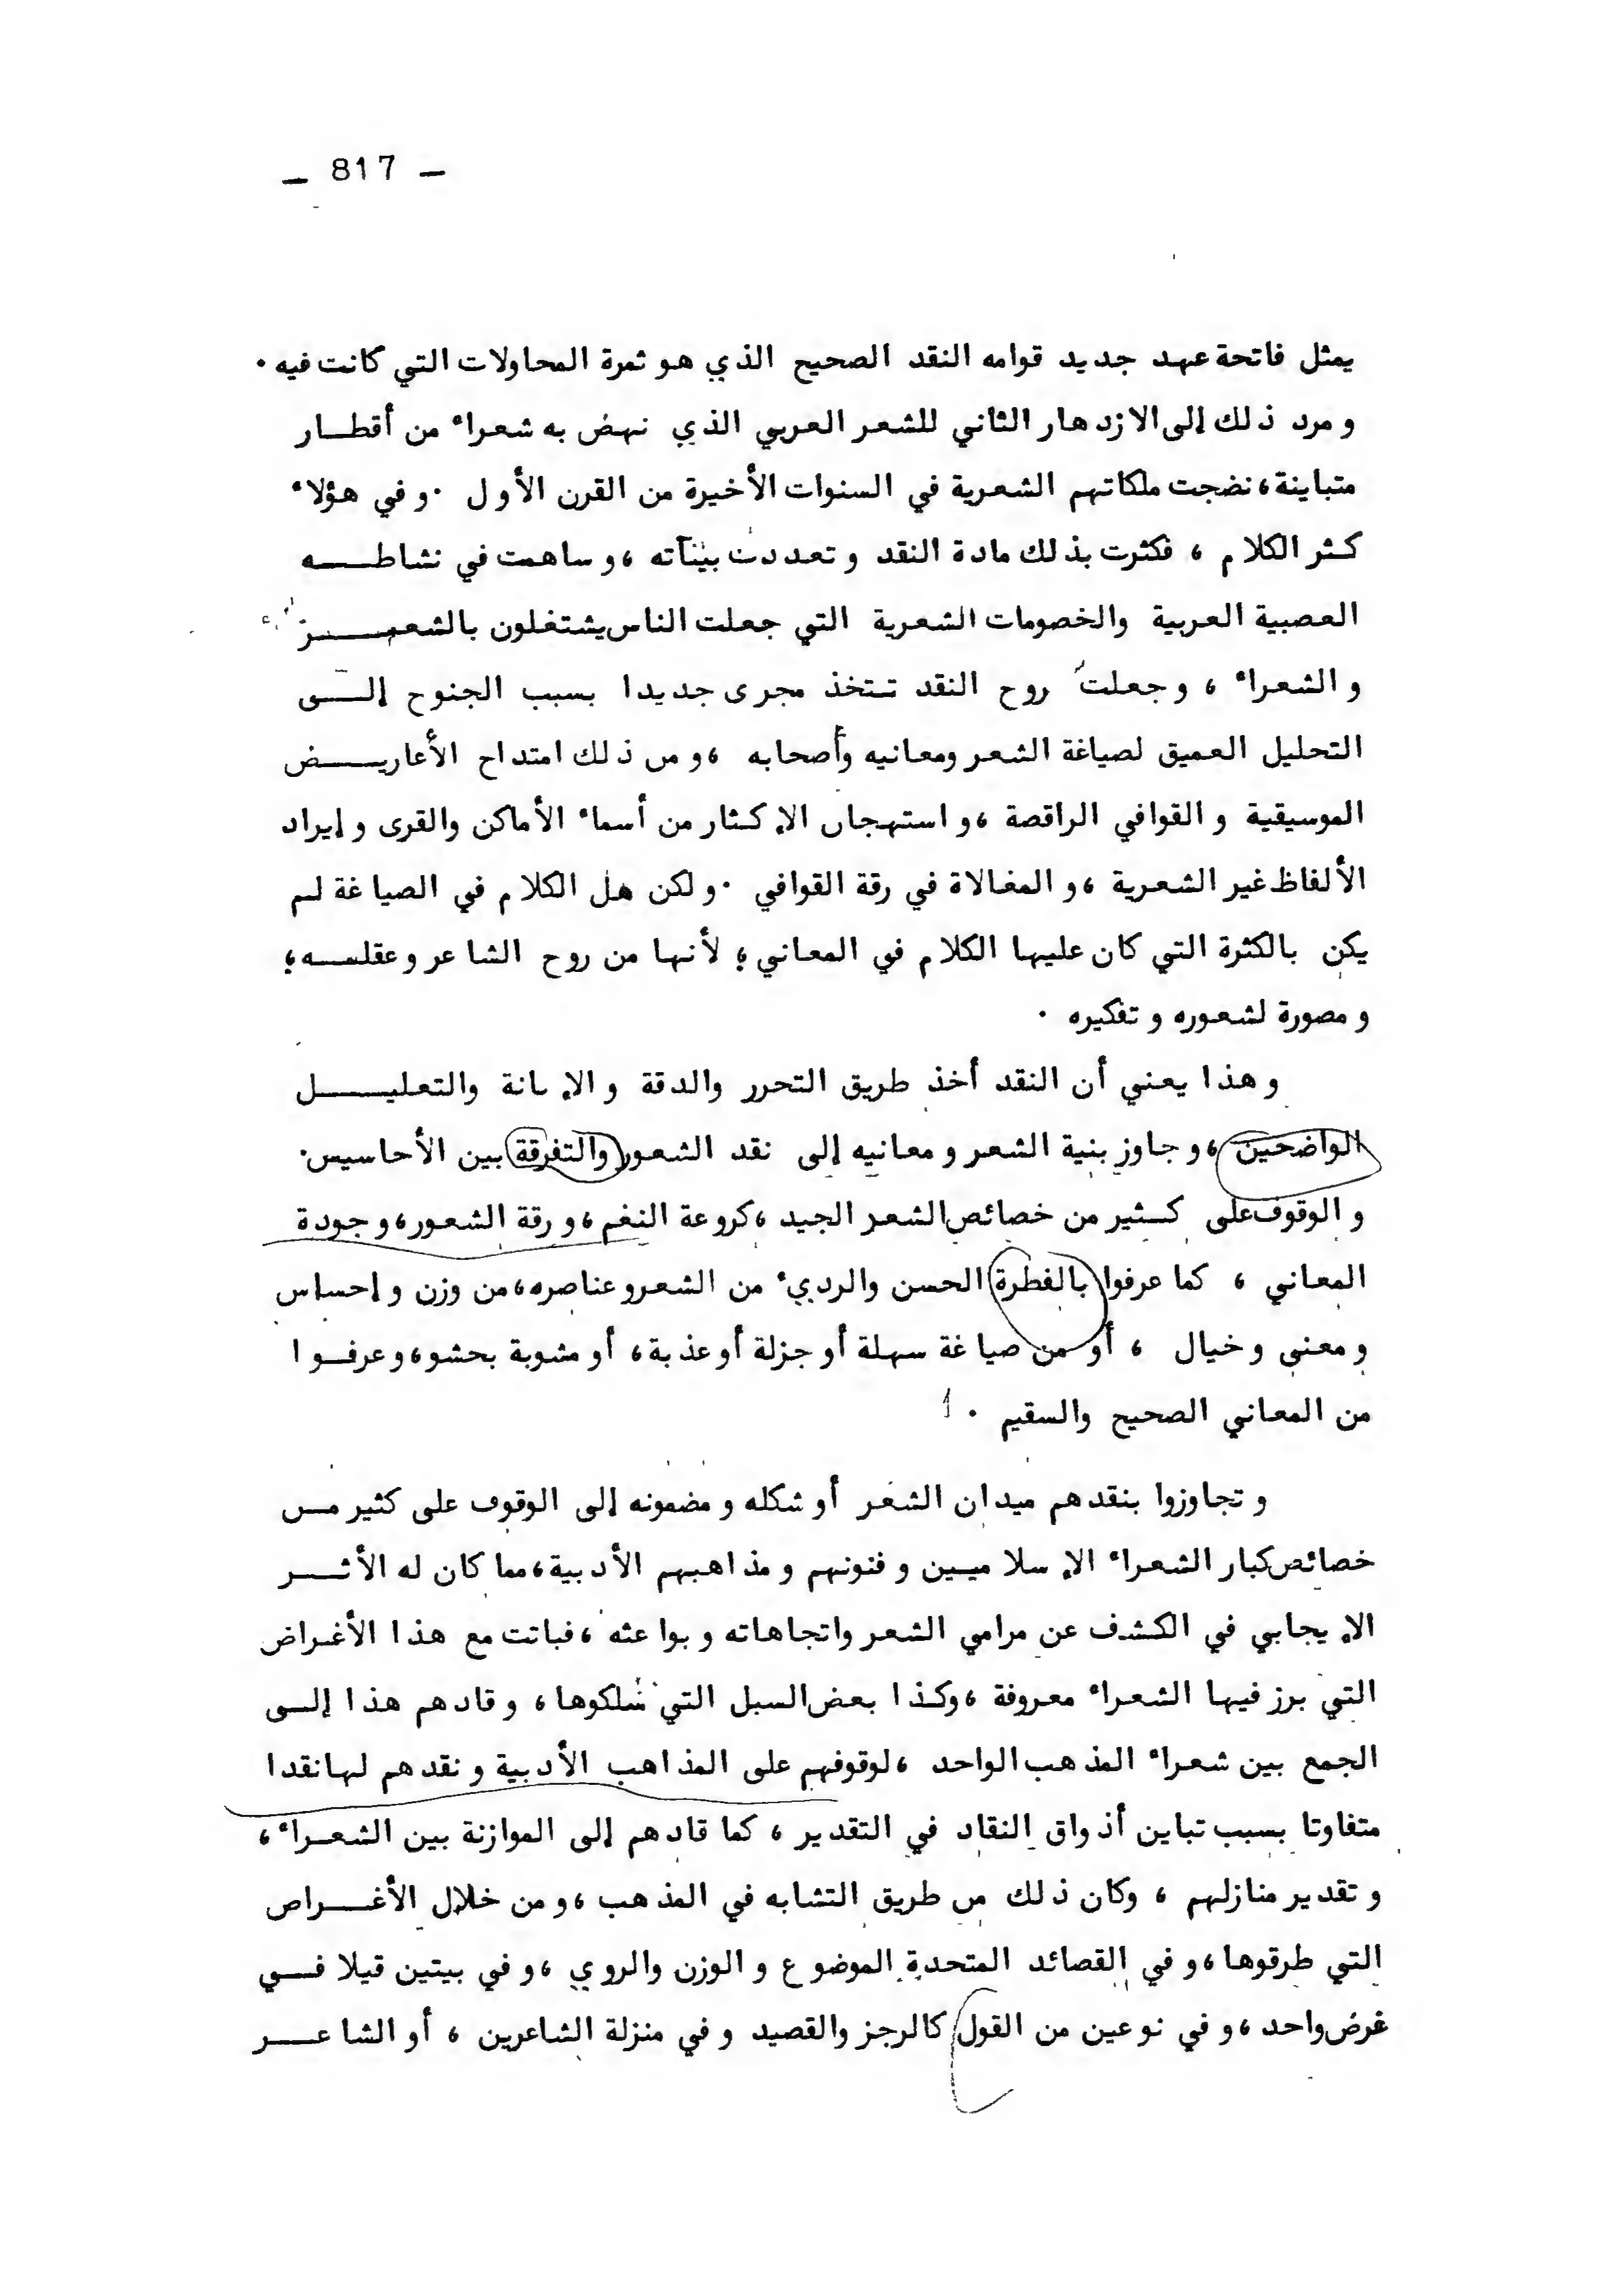 — 817 —
يمثل فاتحة عهد جديد قوامه النقد الصحيح الذي هو ثمرة المحاولات التي كانت فيه .
و مرد ذلك إلى الازدهار الثاني للشعر العربي الذي نهض به شعراء من أقطـار
متباينة، نضجت ملكاتهم الشعرية في السنوات الأخيرة من القرن الأول . و في هؤلاء
كـثر الكلام ، فكثرت بذلك مادة النقد و تعددت بيئاته ، و ساهمت في نشاطـــه
العصبية العربية والخصومات الشعرية التي جعلت الناس يشتغلون بالشعـــر
و الشعراء ، و جعلت روح النقد تـتخذ مجرى جديدا بسبب الجنوح إلـــى
التحليل العميق لصياغة الشعر ومعانيه وأصحابه ، و من ذلك امتداح الأعاريـــض
الموسيقية و القوافي الراقصة ، و استهجان الإكـثار من أسماء الأماكن والقرى و إيراد
الألفاظ غير الشعرية ، و المغالاة في رقة القوافي . و لكن هل الكلام في الصياغة لـم
يكن بالكثرة التي كان عليها الكلام في المعاني ؛ لأنها من روح الشاعر و عقلـــه ؛
و مصورة لشعوره و تفكيره .
و هذا يعني أن النقد أخذ طريق التحرر والدقة و الإبانة والتعليـــل
الواضحين ، و جاوز بنية الشعر و معانيه إلى نقد الشعور والتفرقة بين الأحاسيس.
و الوقوف على كـثير من خصائص الشعر الجيد ، كروعة النغم ، و رقة الشعور، و جودة
المعاني ، كما عرفوا بالفطرة الحسن والرديء من الشعر و عناصره، من وزن و إحساس
و معنى و خيال ، أو من صياغة سهلة أو جزلة أو عذبة، أو مشوبة بحشو، و عرفـوا
من المعاني الصحيح والسقيم .
و تجاوزوا بنقدهم ميدان الشعر أو شكله و مضمونه إلى الوقوف على كثير مــن
خصائص كبار الشعراء الإسلاميـين و فنونهم و مذاهبهم الأدبية، مما كان له الأثـــر
الإيجابي في الكشف عن مرامي الشعر واتجاهاته و بواعثه ، فباتت مع هذا الأغـراض
التي برز فيها الشعراء معروفة ، وكـذا بعض السبل التي سلكوها ، و قادهم هذا إلــى
الجمع بين شعراء المذهب الواحد ، لوقوفهم على المذاهب الأدبية و نقدهم لها نقدا
متفاوتا بسبب تباين أذواق النقاد في التقدير ، كما قادهم إلى الموازنة بين الشعـراء ،
و تقدير منازلهم ، وكان ذلك من طريق التشابه في المذهب ، و من خلال الأغـــراض
التي طرقوها ، و في القصائد المتحدة الموضوع و الوزن والروي ، و في بيتين قيلا فــي
غرض واحد ، و في نوعين من القول كالرجز والقصيد و في منزلة الشاعرين ، أو الشاعـــر